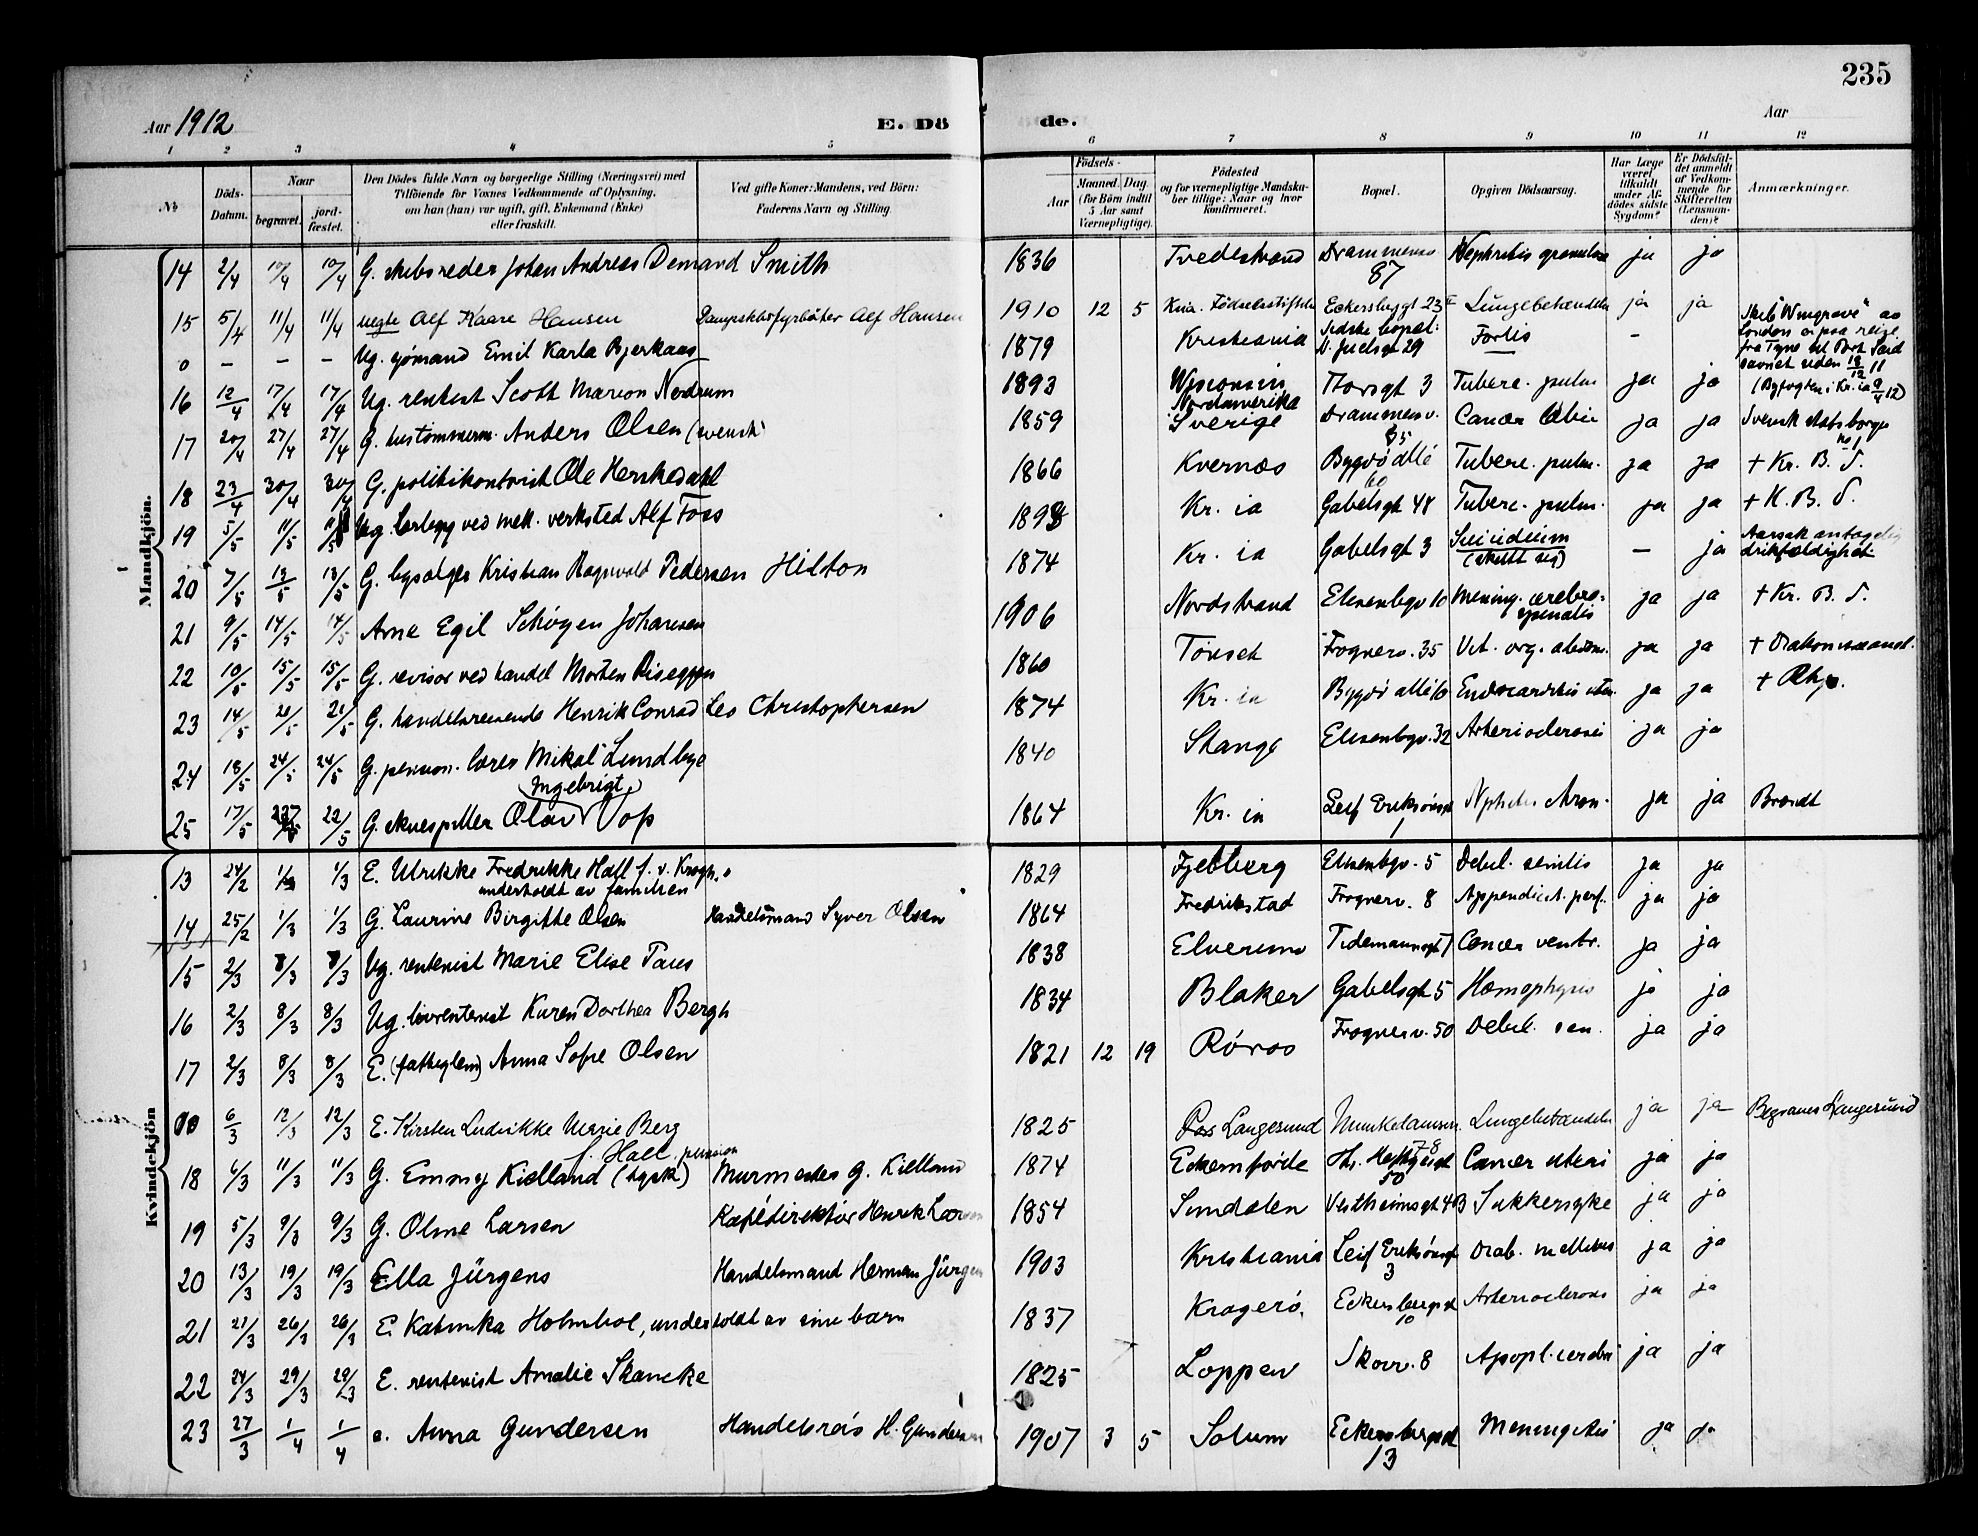 235
Aar 1912 E. Dö de. Aar
1 2 3 4 5 6 7 8 9 10 11 12
No
Döds-Datum.
Naar
begravet.
jord-fæstet.
Den Dödes fulde Navn og borgerlige Stilling (Næringsvei) med
Tilföiende for Voxnes Vedkommende af Oplysning,
om han (hun) var ugift, gift, Enkemand (Enke)
eller fraskilt.
Ved gifte Koner: Mandens, ved Börn:
Faderens Navn og Stilling.
Födsels-
Aar
Maaned. Dag.
(for Börn indtil
5 Aar samt
Værnepligtige).
Födested
og for værnepligtige Mandska-
ber tillige: Naar og hvor
konfirmeret.
Bopæl.
Opgiven Dödsaarsag.
Har Læge
været
tilkaldt
under Af-
dödes sidste
Sygdom?
Er Dödsfal-
det anmeldt
af Vedkom-
mende for
Skifteretten
(Lensman-
den)?
Anmærkninger.
Mandkjön.
14 2/4 10/4 10/4 G. skibsreder Johan Andreas Demand Smith 1836 Tvedestrand Drammensv 87 Nephritis granulosa ja ja
15 5/4 11/4 11/4 uegte Alf Kaare Hansen Dampskibsfyrbøter Alf Hansen 1910 12 5 Kria. Fødselsstiftelse Eckersbgt 23 II Lungebetændelse ja ja
0 – – – Ug. sjømand Emil Karlo Bjerkaas 1879 Kristiania Sidste bopæl: N. Juelsgt 29 Forlis – Skib "Wingrave" av London op paa reise fra Tyne til Port Said savnet siden 18/12 11 (Byfogden i Kr.ia 9/4 12)
16 12/4 17/4 17/4 Ug. rentist Scott Marion Nordrum 1893 Wisconsin Nordamerika Thorsgt 3 Tuberc. pulm ja ja
17 20/4 27/4 27/4 G. hustømmerm. Anders Olsen (svensk) 1859 Sverige Drammensv. 85 Cancer ja ja Svensk statsborger
18 23/4 30/4 30/4 G. politikontorist Ole Henkedahl 1866 Kvernæs Bygdø allé 60 Tuberc. pulm. ja ja + Kr. B. S.
19 5/5 11/5 11/5 Ug. lærling ved mek. verksted Alf Foss 1893 Kr. ia Gabelsgt 48 Tuberc. pulm. ja ja + K. B. S.
20 7/5 13/5 13/5 G. Kristian Ragnvald Pedersen Hilton 1874 Kr. ia Gabelsgt 3 Suicidium (skutt sig) – ja Aarsak antagelig drikfældighet
21 9/5 14/5 14/5 Arne Egil Schøyen Johansen 1906 Nordstrand Elisenbgv 10 Mening. cerebro-spinalis ja ja + Kr. B. S.
22 10/5 15/5 15/5 G. revisor ved handel Morten Riseggen 1860 Tönset Frognerv. 35 Vit. org. abdom. ja ja + Diakonisseanst.
23 14/5 21/5 21/5 G. handelsreisende Henrik Conrad Leo Christophersen 1874 Kr. ia Bygdø allé 6 Endocarditis ulcer. ja ja + Rhp.
24 18/5 24/5 24/5 G. pension. lærer Mikal Lundbye 1840 Stange Elisenbgv. 32 Arteriosclerosis ja ja
25 17/5 22/5 G. skuespiller Olav Ingebrigt Voss 1864 Kr. ia Leif Eriksönsgt 1 Nephritis chron. ja ja Brændt
Kvindekjön
13 24/2 1/3 1/3 E. Ulrikke Fredrikke Hall f. v. Krogh, underholdt av familien 1829 Fjelberg Elisenbgv. 5 Debil. senilis ja ja
14 25/2 1/3 1/3 G. Laurine Birgitte Olsen Handelsmand Syver Olsen 1864 Fredrikstad Frognerv. 8 Appendicit. perf. ja ja
15 2/3 8/3 8/3 Ug. rentenist Marie Elise Paus 1838 Elverum Tidemannsgt 7 Cancer ventr. ja ja
16 2/3 8/3 8/3 Ug. livrentenist Karen Dorthea Bergh 1834 Blaker Gabelsgt 5 Hæmophysis ja ja
17 2/3 8/3 8/3 E. (fattiglem) Anna Sofie Olsen 1821 12 19 Röros Frognerv. 50 Debil. sen. ja ja
6/3 12/3 12/3 E. Kirsten Ludvikke Marie Berg f. Hall, pension 1825 Langesund Munkedamsv. 78 Lungebetændelse ja ja Begraves Langesund
18 6/3 11/3 11/3 G. Emmy Kielland (tysk) Murmester G. Kielland 1874 Eckernförde Th. Heftyesgt 50 Cancer uteri ja ja
19 5/3 9/3 9/3 G. Oline Larsen Kafédirektør Henrik Larsen 1854 Sundalen Vestheimsgt 4B Sukkersyke ja ja
20 13/3 19/3 19/3 Ella Jürgens Handelsmand Herman Jürgens 1903 Kristiania Leif Eriksönsgt 3 Diab. mellitus ja ja
21 21/3 26/3 26/3 E. Katinka Holmboe, underholdt av sine barn 1837 Kragerö Eckersbergsgt 10 Arteriosclerosis ja ja
22 24/3 29/3 29/3 E. rentenist Amalie Skancke 1825 Loppen Skovv. 8 Apopl. cerebri ja ja
23 27/3 1/4 1/4 Anna Gundersen Handelsreis H. Gundersen 1907 3 5 Solum Eckersbergsgt 13 Meningitis ja ja